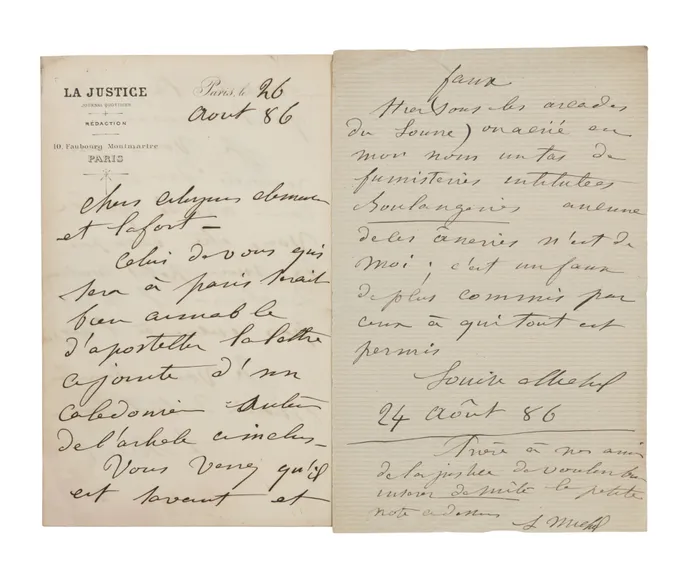 LA JUSTICE
JOURNAL QUOTIDIEN
RÉDACTION
10, Faubourg Montmartre
PARIS
Paris, le 26
Aout 86
chers citoyens clemenceau
et lafort -
Celui de vous qui
sera à paris serait
bien aimable
d'apostiller la lettre
ci jointe d'un
caledonien
de l'article ci inclus -
Vous verrez qu'il
est savant et
faux
Hier (sous les arcades
du Louvre) on a crié en
mon nom un tas de
fumisteries intitulées
Boulangeries aucune
de ces âneries n'est de
moi ; c'est un faux
de plus commis par
ceux à qui tout est
permis
Louise Michel
24 Août 86
Prière à nos amis
de la justice de vouloir bien
insérer de suite la petite
note ci dessus
L Michel